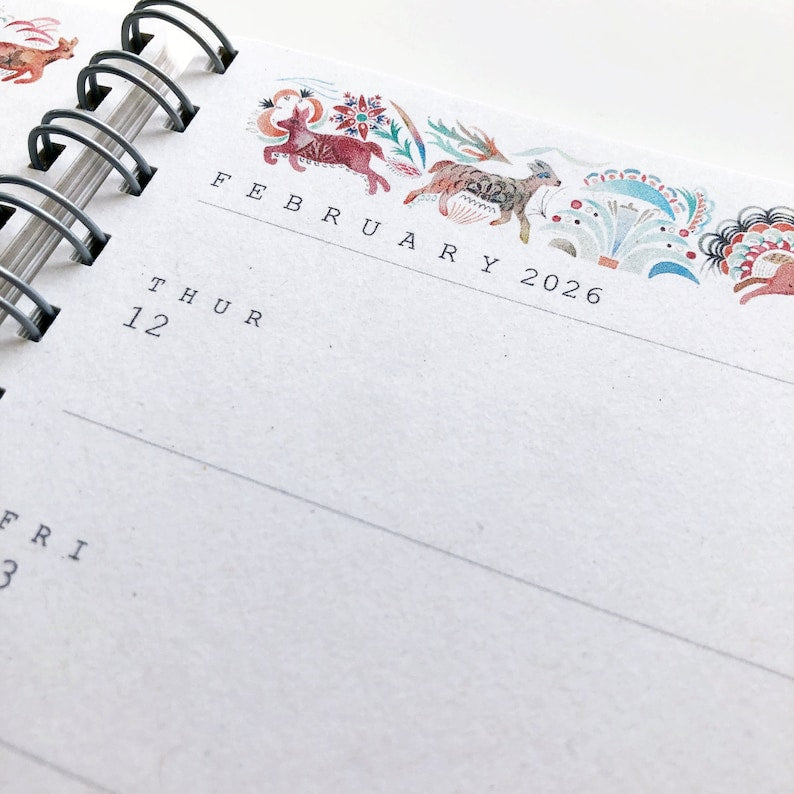 FEBRUARY 2026
THUR
12
FRI
3